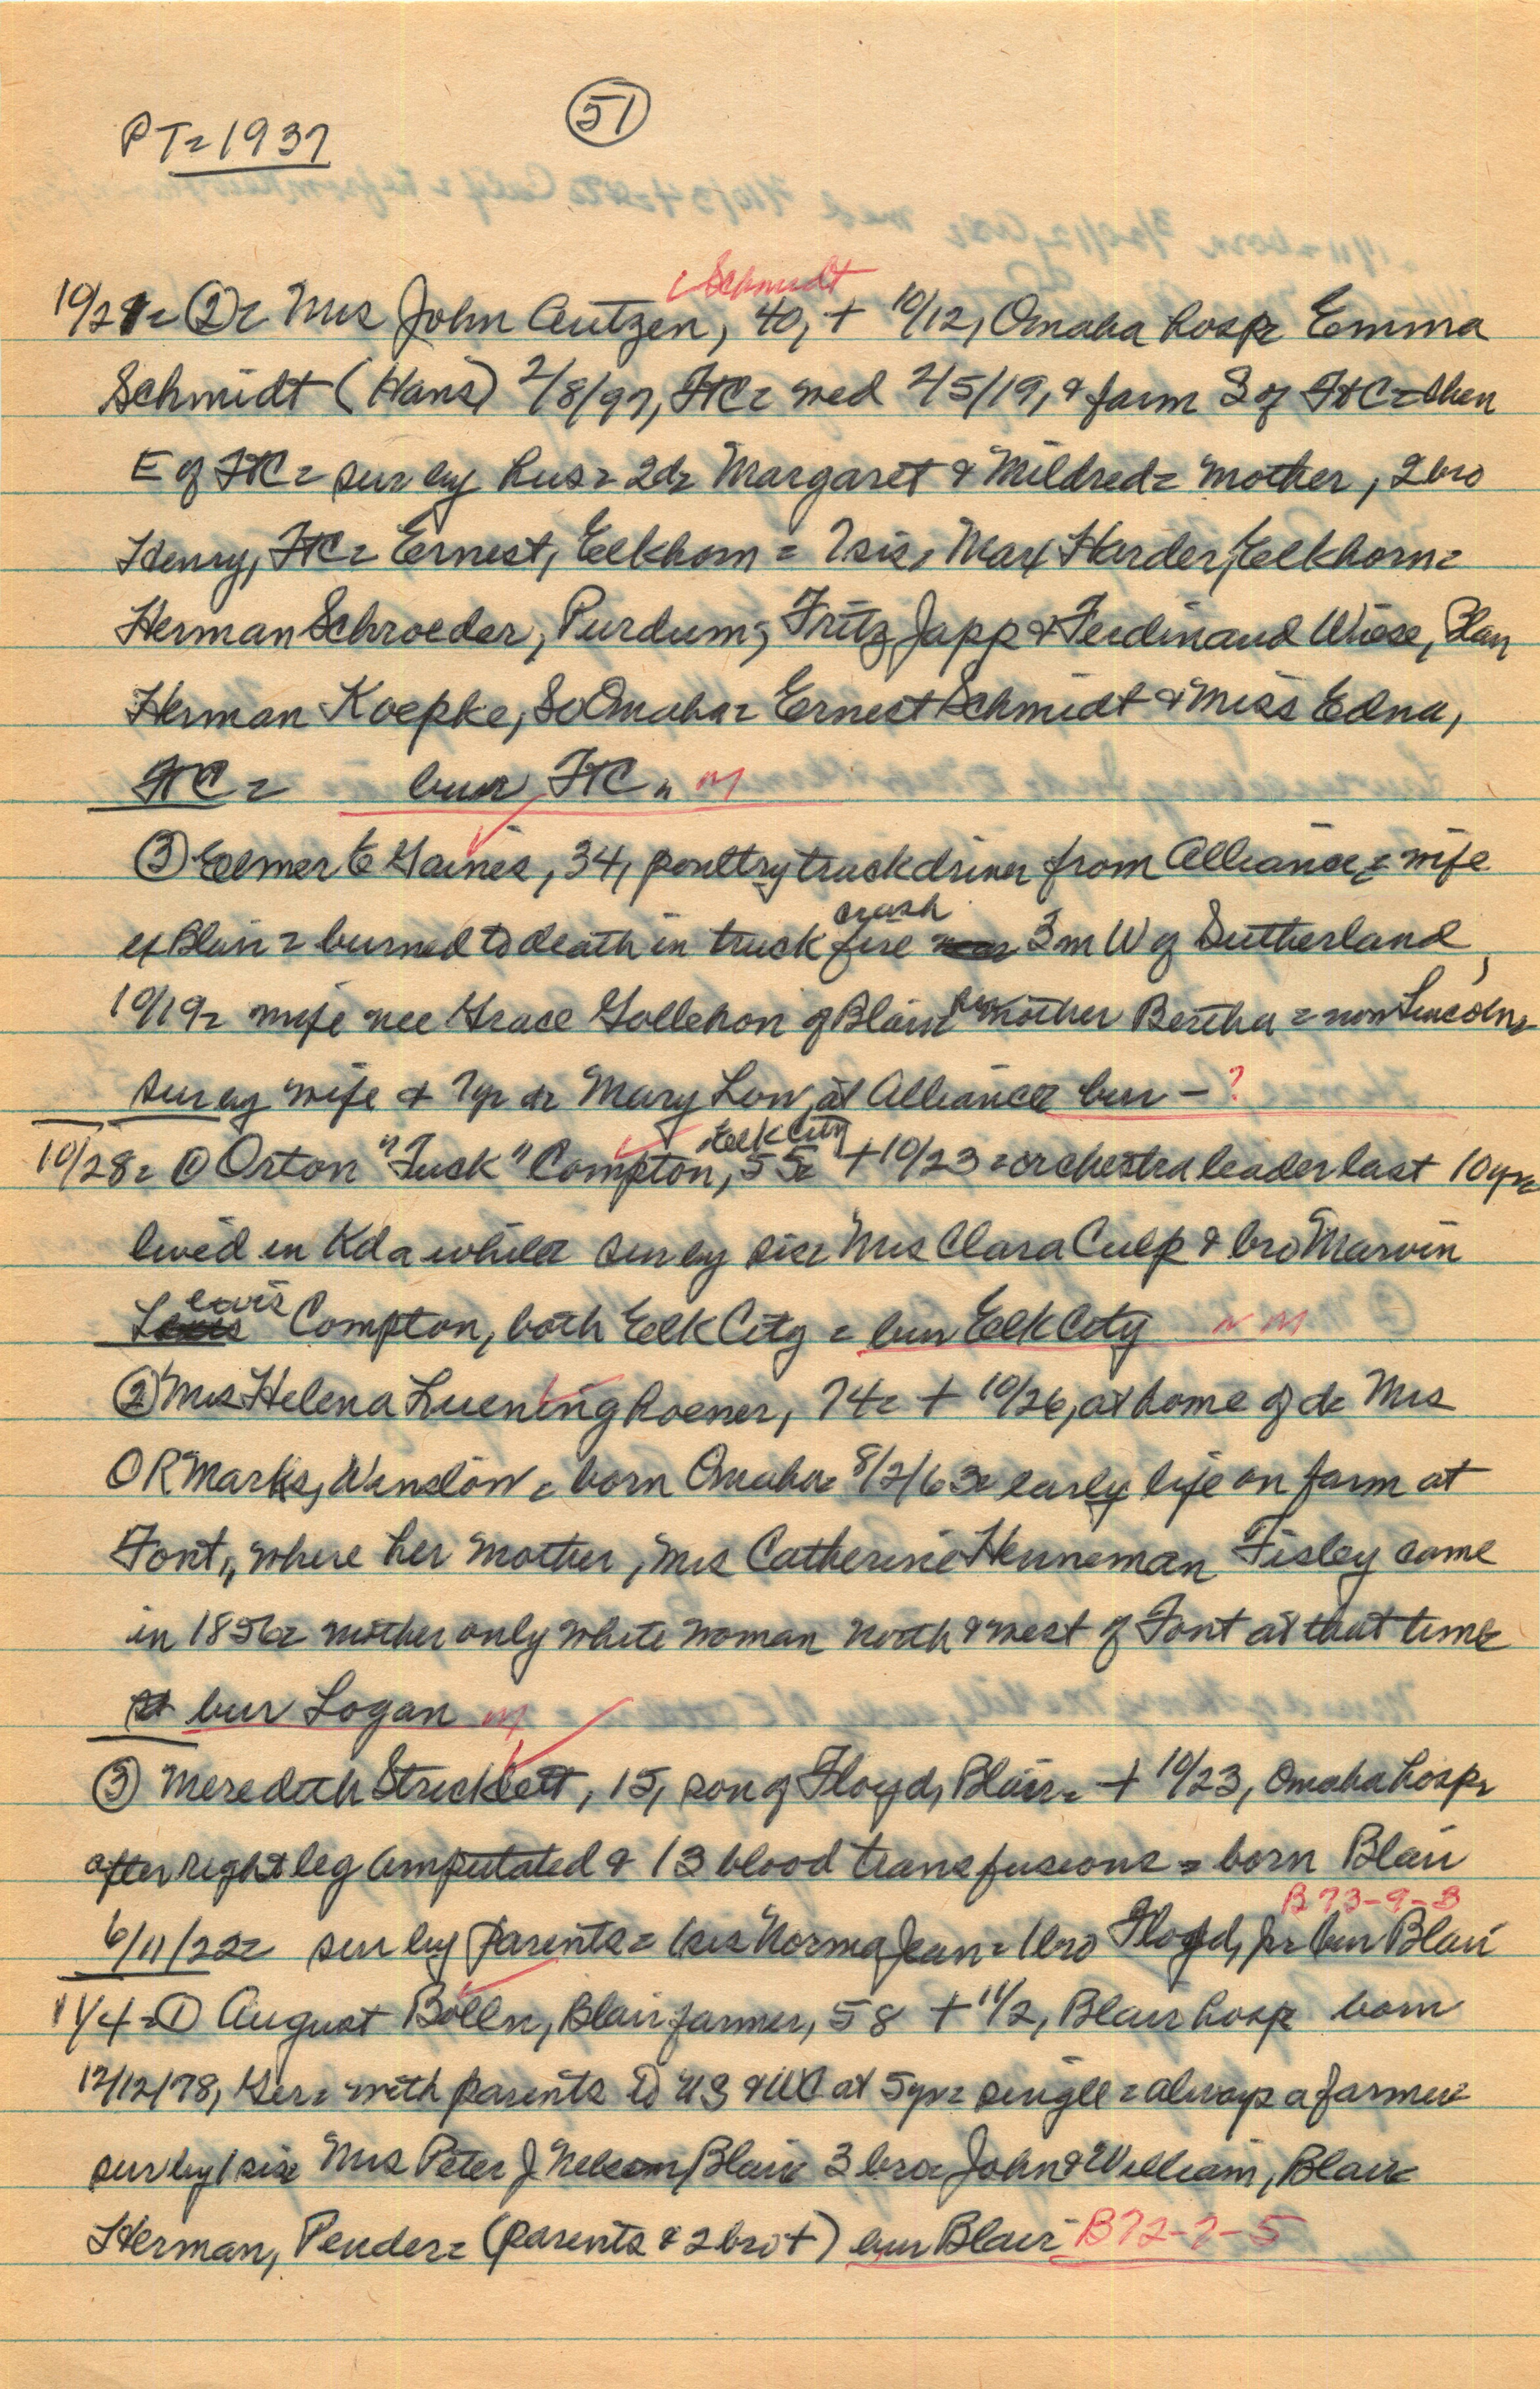 PT=1937
51
Schmidt
10/21= ②= Mrs John Autzen, 40, + 10/12, Omaha hosp= Emma
Schmidt (Hans) 2/8/97, FtC= wed 2/5/19, & farm S of FtC= then
E of FtC= sur by hus= 2d= Margaret & Mildred= mother, 2 bro
Henry, FtC= Ernest, Elkhorn = 7 sis, Max Harder, Elkhorn=
Herman Schroeder, Purdum; Fritz Japp & Ferdinand Wiese, Blair
Herman Koepke, So Omaha= Ernest Schmidt & Miss Edna,
FtC= bur FtC= M
③ Elmer E Gaines, 34, poultry truck driver from Alliance= wife
crash
ex Blair= burned to death in truck fire 3 m W of Sutherland,
10/19= wife nee Grace Gollehon of Blair= her mother Bertha = now Lincoln=
sur by wife & 7 yr d= Mary Lou, at Alliance bur - ?
Elk City
10/28= ① Orton "Tuck" Compton, 55= + 10/23= orchestra leader last 10 yr=
lived in Kd a while= sur by sis= Mrs Clara Culp & bro Marvin
Lewis Compton, both Elk City = bur Elk City M
② Mrs Helena Lueninghoener, 74= + 10/26, at home of d= Mrs
O R Marks, Winslow = born Omaha= 8/2/63= early life on farm at
Font, where her mother, Mrs Catherine Henneman Fisley came
in 1856= mother only white woman north & west of Font at that time
bur Logan M
③ Meredith Stricklett, 15, son of Floyd, Blair= + 10/23, Omaha hosp=
after right leg amputated & 13 blood transfusions = born Blair
B73-9-3
6/11/22= sur by parents= 1 sis Norma Jean= 1 bro Floyd, jr= bur Blair
11/4=① August Bolln, Blair farmer, 58 + 11/2, Blair hosp born
12/12/78, Ger= with parents to US & WC at 5 yr= single= always a farmer=
sur by 1 sis= Mrs Peter J Nelson, Blair= 3 bro= John & William, Blair=
Herman, Pender= (parents & 2 bro +) bur Blair B72-7-5